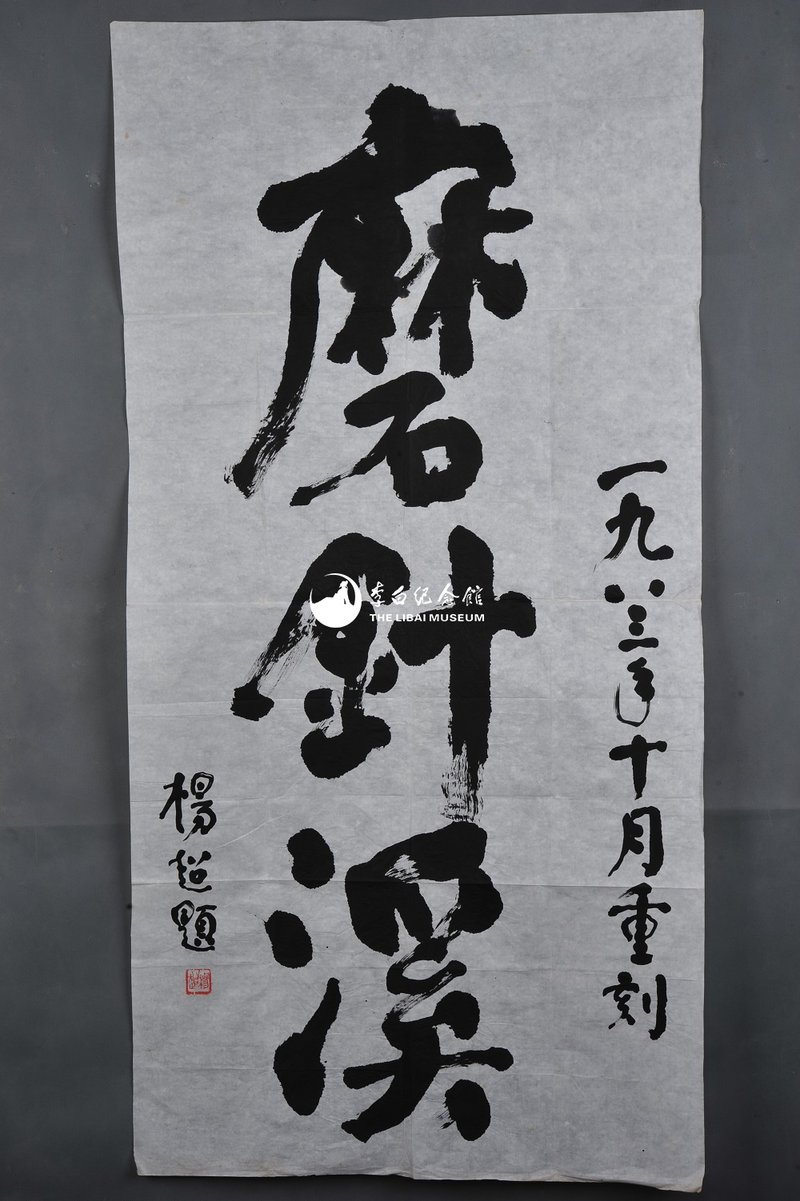 一九八三年十月重刻
磨針溪
楊超題
李白纪念館
THE LIBAI MUSEUM